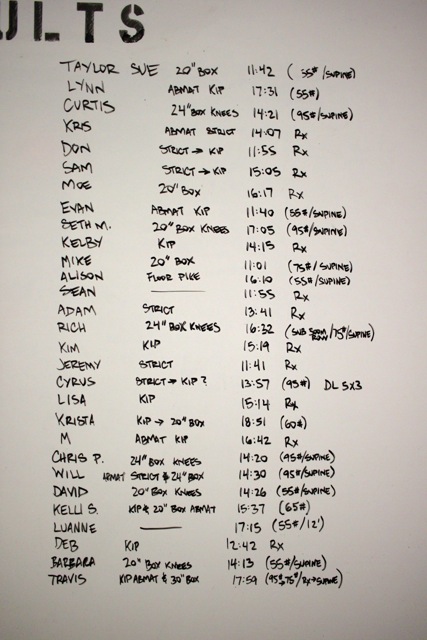 ULTS
TAYLOR SUE 20" BOX 11:42 (55#/SUPINE)
LYNN ABMAT KIP 17:31 (55#)
CURTIS 24" BOX KNEES 14:21 (95#/SUPINE)
KRIS ABMAT STRICT 14:07 Rx
DON STRICT → KIP 11:55 Rx
SAM STRICT → KIP 15:05 Rx
MOE 20" BOX 16:17 Rx
EVAN ABMAT KIP 11:40 (55#/SUPINE)
SETH M. 20" BOX KNEES 17:05 (95#/SUPINE)
KELBY KIP 14:15 Rx
MIKE 20" BOX 11:01 (75#/SUPINE)
ALISON FLOOR PIKE 16:10 (55#/SUPINE)
SEAN — 11:55 Rx
ADAM STRICT 13:41 Rx
RICH 24" BOX KNEES 16:32 (SUB 500M ROW/75#/SUPINE)
KIM KIP 15:19 Rx
JEREMY STRICT 11:41 Rx
CYRUS STRICT → KIP ? 13:57 (95#) DL 5X3
LISA KIP 15:14 Rx
KRISTA KIP → 20" BOX 18:51 (60#)
M ABMAT KIP 16:42 Rx
CHRIS P. 24" BOX KNEES 14:20 (95#/SUPINE)
WILL ABMAT STRICT & 24" BOX 14:30 (95#/SUPINE)
DAVID 20" BOX KNEES 14:26 (55#/SUPINE)
KELLI S. KIP & 20" BOX ABMAT 15:37 (65#)
LUANNE — 17:15 (55#/12')
DEB KIP 12:42 Rx
BARBARA 20" BOX KNEES 14:13 (55#/SUPINE)
TRAVIS KIP ABMAT & 30" BOX 17:59 (95#,75#/Rx→SUPINE)